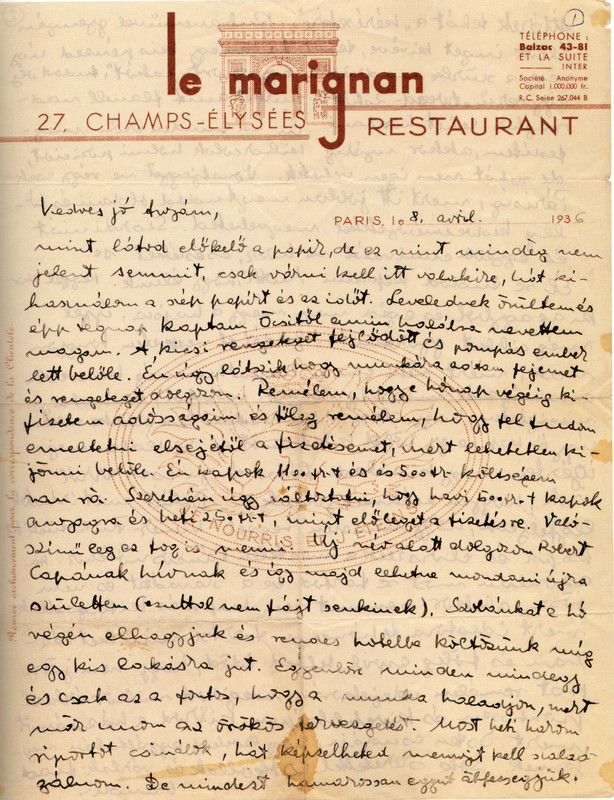 ①
le marignan
TÉLÉPHONE :
Balzac 43-81
ET LA SUITE
INTER
Société Anonyme
Capital 1.000.000 fr.
R. C. Seine 267.044 B
27, CHAMPS-ÉLYSÉES RESTAURANT
Kedves jó Anyám,
PARIS, le 8. avril. 1936
mint látod előkelő a papír, de ez mint mindég nem
jelent semmit, csak várni kell itt valakire, hát ki-
használom a szép papírt és az időt. Levelednek örültem és
épp tegnap kaptam Öcsitől amin halálra nevettem
magam. A kicsi rengeteget fejlődött és pompás ember
lett belőle. Én úgy látszik hogy munkára adtam fejemet
és rengeteget dolgozom. Remélem, hogy e hónap végéig ki-
fizetem adósságaim és főleg remélem, hogy fel tudom
emeltetni elsejétől a fizetésemet, mert lehetetlen ki-
jönni belőle. Én kapok 1100 fr-t és és 500 fr költségem
van rá. Szeretném úgy változtatni, hogy havi 500 fr-t kapok
anyagra és heti 250 fr-t, mint előleget a fizetésre. Való-
színűleg ez fog is menni. Új név alatt dolgozom Robert
Capának hívnak és így majd lehetne mondani újra
születtem (ezuttal nem fájt senkinek). Szobánkat e hó
végén elhagyjuk és rendes hotelba költözünk míg
egy kis lakásra jut. Egyenlőre minden mindegy
és csak az a fontos, hogy a munka haladjon, mert
már unom az örökös tervezgetést. Most heti három
riportot csinálok, hát képzelheted mennyit kell
De mindezt hamarosan együtt
NOURRIS ET J'
Réservé exclusivement pour la correspondance de la Clientèle